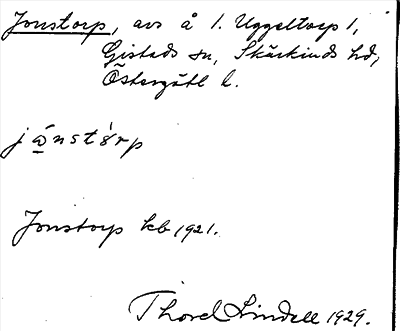 Jonstorp, avs å 1. Uggeltorp 1,
Gistads sn, Skärkinds hd,
Östergötl l.
jọ̈nstórp
Jonstorp kb 1921.
Thorel Lindell 1929.